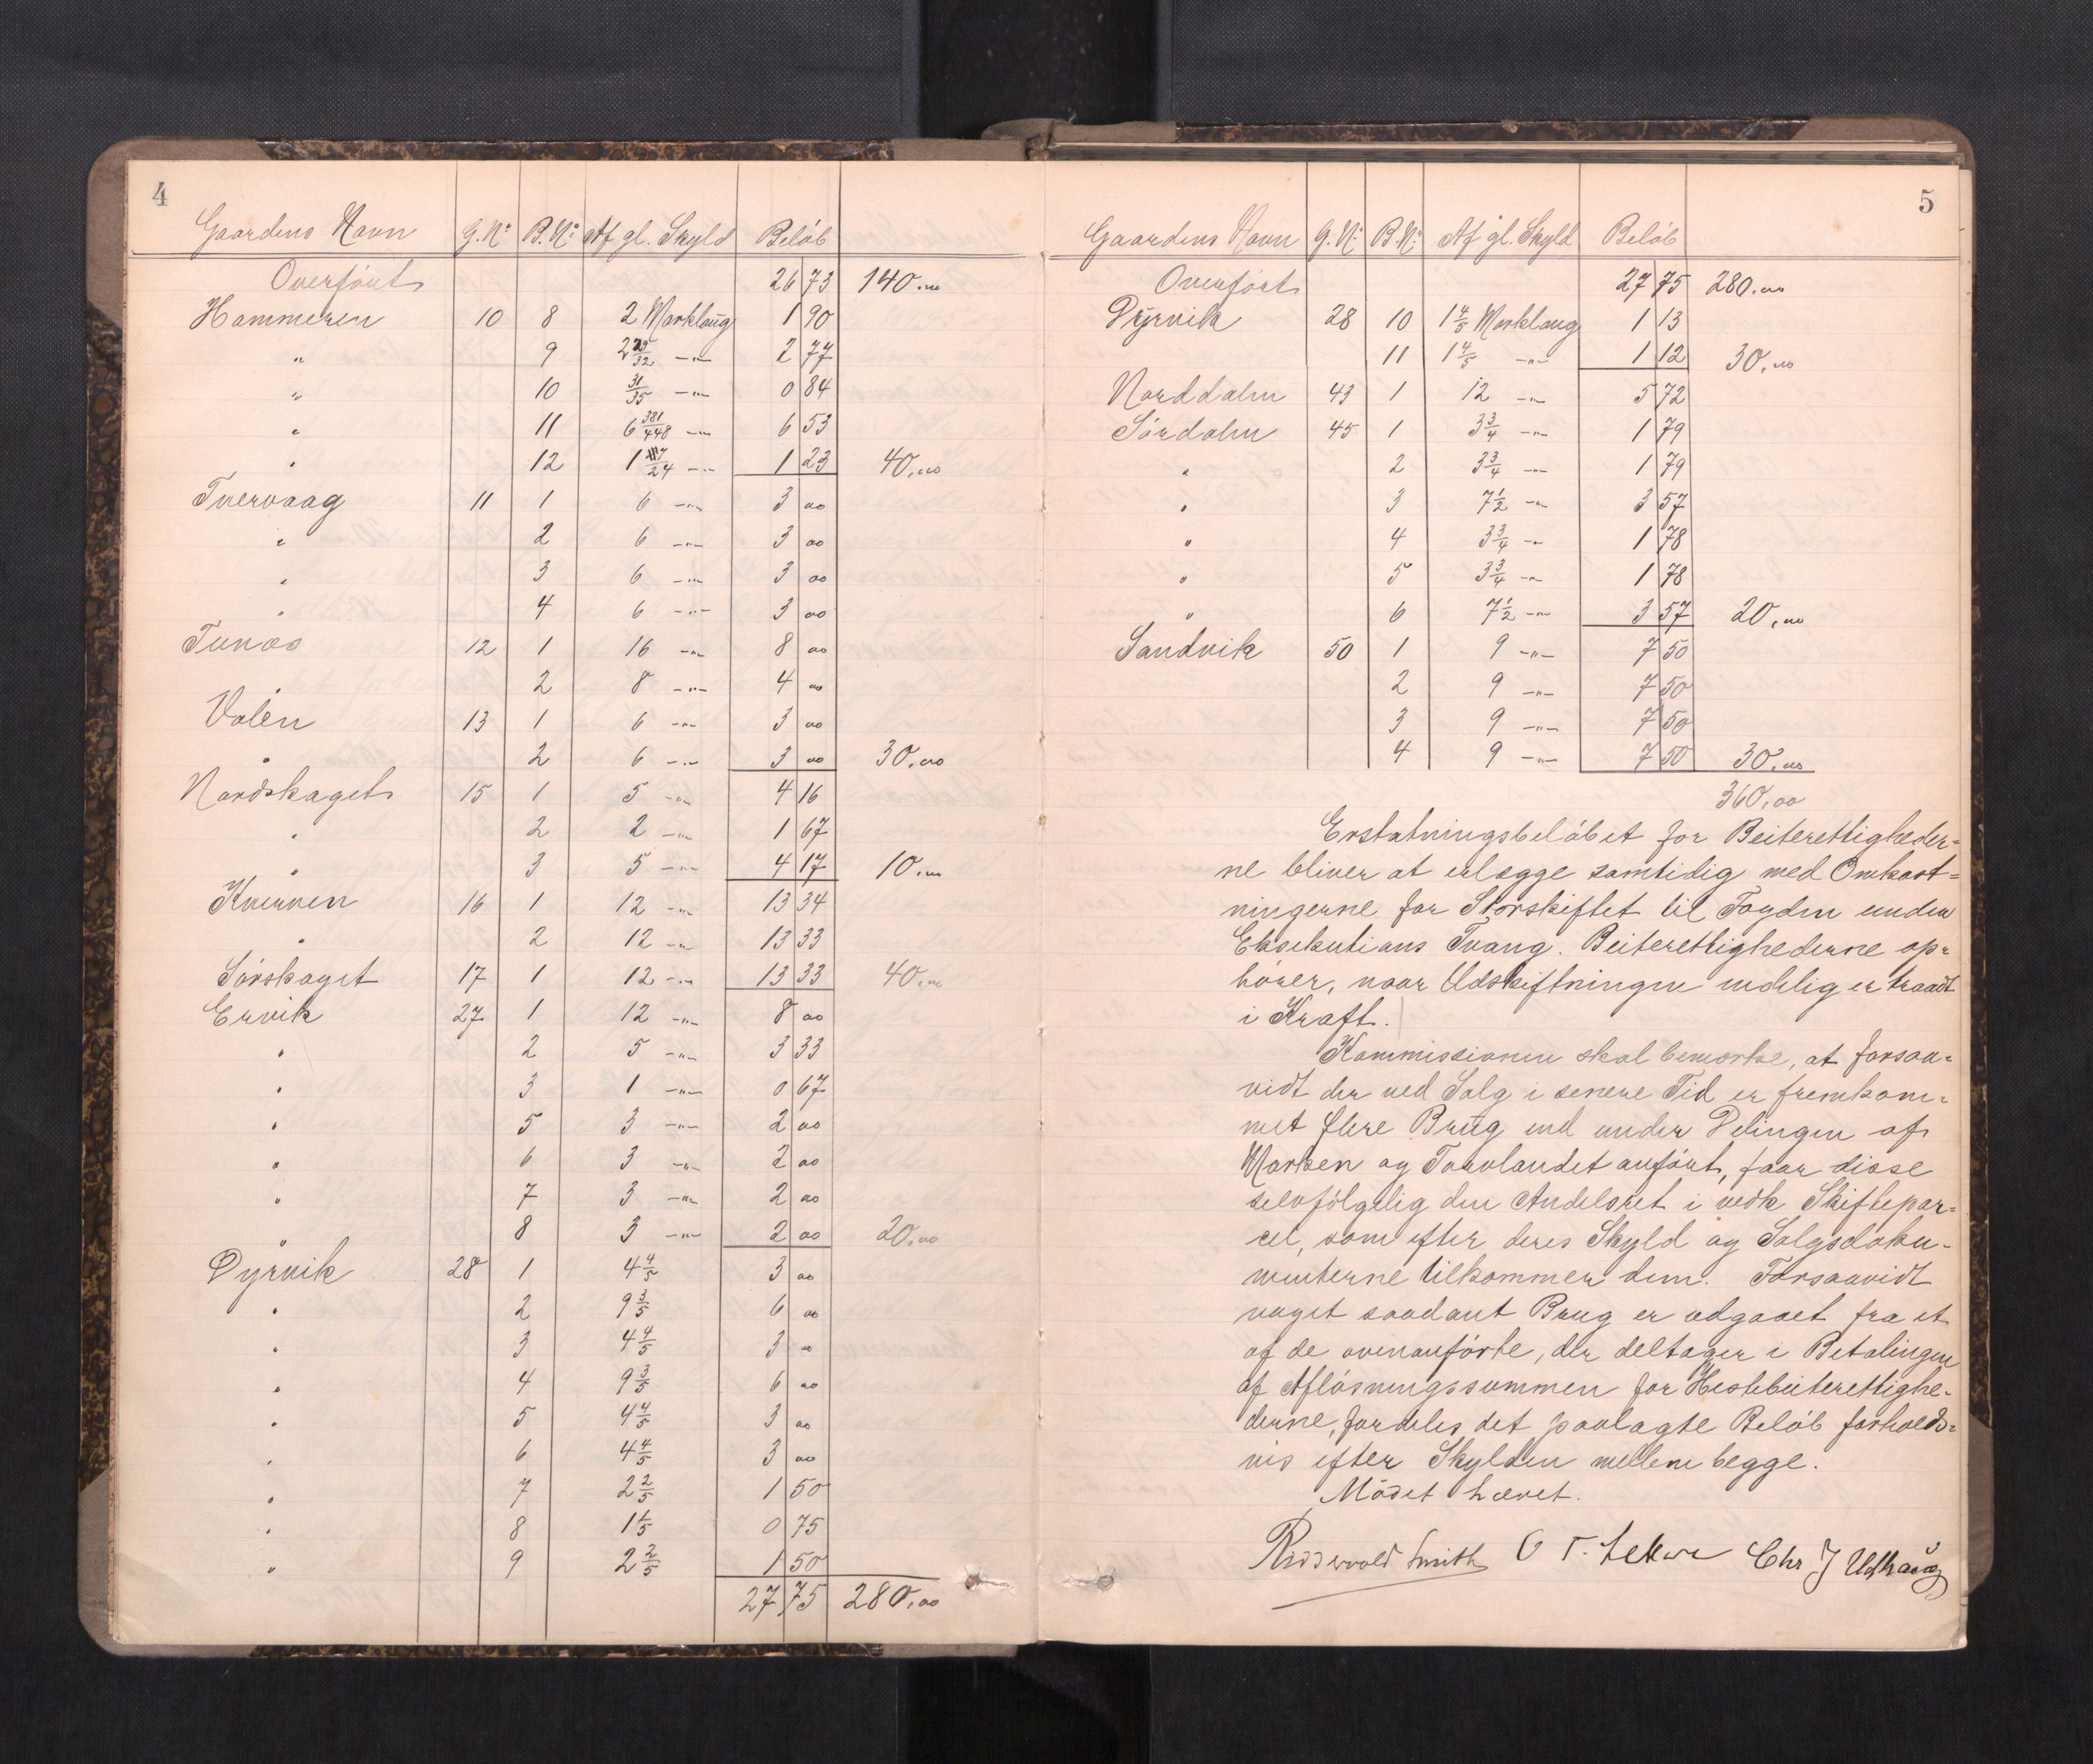 4
Gaardens Navn G.No B.No Af gl. Skyld Beløb
Overført 26 73 140.00
Hammeren 10 8 2 Marklaug 1 90
" 9 2 29/32 -"- 2 77
" 10 31/35 -"- 0 84
" 11 6 381/448 -"- 6 53
" 12 1 7/24 -"- 1 23 40,00
Tvervaag 11 1 6 -"- 3 00
" 2 6 -"- 3 00
" 3 6 -"- 3 00
" 4 6 -"- 3 00
Tunas 12 1 16 -"- 8 00
" 2 8 -"- 4 00
Valen 13 1 6 -"- 3 00
" 2 6 -"- 3 00 30.00
Nordskaget 15 1 5 -"- 4 16
" 2 2 -"- 1 67
" 3 5 -"- 4 17 10.00
Kverven 16 1 12 -"- 13 34
" 2 12 -"- 13 33
Sørskaget 17 1 12 -"- 13 33 40.00
Ervik 27 1 12 -"- 8 00
" 2 5 -"- 3 33
" 3 1 -"- 0 67
" 5 3 -"- 2 00
" 6 3 -"- 2 00
" 7 3 -"- 2 00
" 8 3 -"- 2 00 20.00
Dyrvik 28 1 4 4/5 3 00
" 2 9 3/5 6 00
" 3 4 4/5 3 00
" 4 9 3/5 6 00
" 5 4 4/5 3 00
" 6 4 4/5 3 00
" 7 2 2/5 1 50
" 8 1 1/5 0 75
" 9 2 2/5 1 50
27 75 280.00
5
Gaardens Navn G.No B.No Af gl. Skyld Beløb
Overført 27 75 280.00
Dyrvik 28 10 1 4/5 Marklaug 1 13
11 1 4/5 -"- 1 12 30,00
Norddalen 43 1 12 -"- 5 72
Sørdalen 45 1 3 3/4 -"- 1 79
" 2 3 3/4 -"- 1 79
" 3 7 1/2 -"- 3 57
" 4 3 3/4 -"- 1 78
" 5 3 3/4 -"- 1 78
" 6 7 1/2 -"- 3 57 20,00
Sandvik 50 1 9 -"- 7 50
2 9 -"- 7 50
3 9 -"- 7 50
4 9 -"- 7 50 30.00
360,00
Erstatningsbeløbet for Beiterettigheder-
ne bliver at erlægge samtidig med Omkost-
ningerne for Storskiftet til Fogden under
Eksekutions Tvang. Beiterettighederne op-
hører, naar Udskiftningen endelig er traadt
i Kraft.
Kommissionen skal bemærke, at forsaa-
vidt der ved Salg i senere Tid er fremkom-
met flere Brug end under Delingen af
Marken og Torvlandet anført, faar disse
selvfølgelig den Andelsret i vedk Skiftepar-
cel, som efter deres Skyld og Salgsdoku-
menterne tilkommer dem. Forsaavidt
noget saadant Brug er udgaaet fra et
af de ovenanførte, der deltager i Betalingen
af Afløsningssummen for Hestebeiterettighe-
derne, fordeles det paalagte Beløb forholds-
vis efter Skylden mellem begge.
Mødet hævet.
Smith O T. Chr J Udhaug